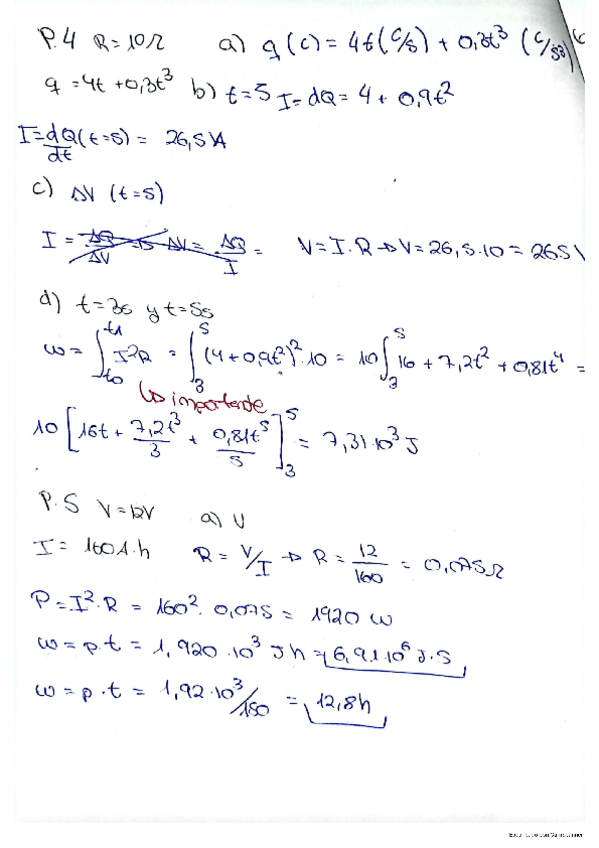 P.4 R=10Ω a) q (c) = 4t(C/s) + 0,3t³ (C/s³)
q =4t +0,3t³ b) t=5 I=dQ= 4+ 0,9t²
I=dQ/dt(t=5) = 26,5 A
c) ΔV (t=5)
I = ΔQ/ΔV ΔV= ΔQ/I = V=I.R → V=26,5.10 = 265V
d) t=3s y t=5s
w= ∫_{t0}^{t1} I²R = ∫_3^5 (4+0,9t²)².10 = 10∫_3^5 16+7,2t²+0,81t⁴ =
↳ importante
10 [16t + 7,2t³/3 + 0,81t⁵/5]_3^5 = 7,31.10³ J
P.5 V=12V a) U
I= 160A.h R= V/I → R= 12/160 = 0,075Ω
P=I².R = 160².0,075= 1920 w
w=p.t = 1,920.10³ Jh = 6,91.10⁶ J.s
w=p.t = 1,92.10³/150 = 12,8h